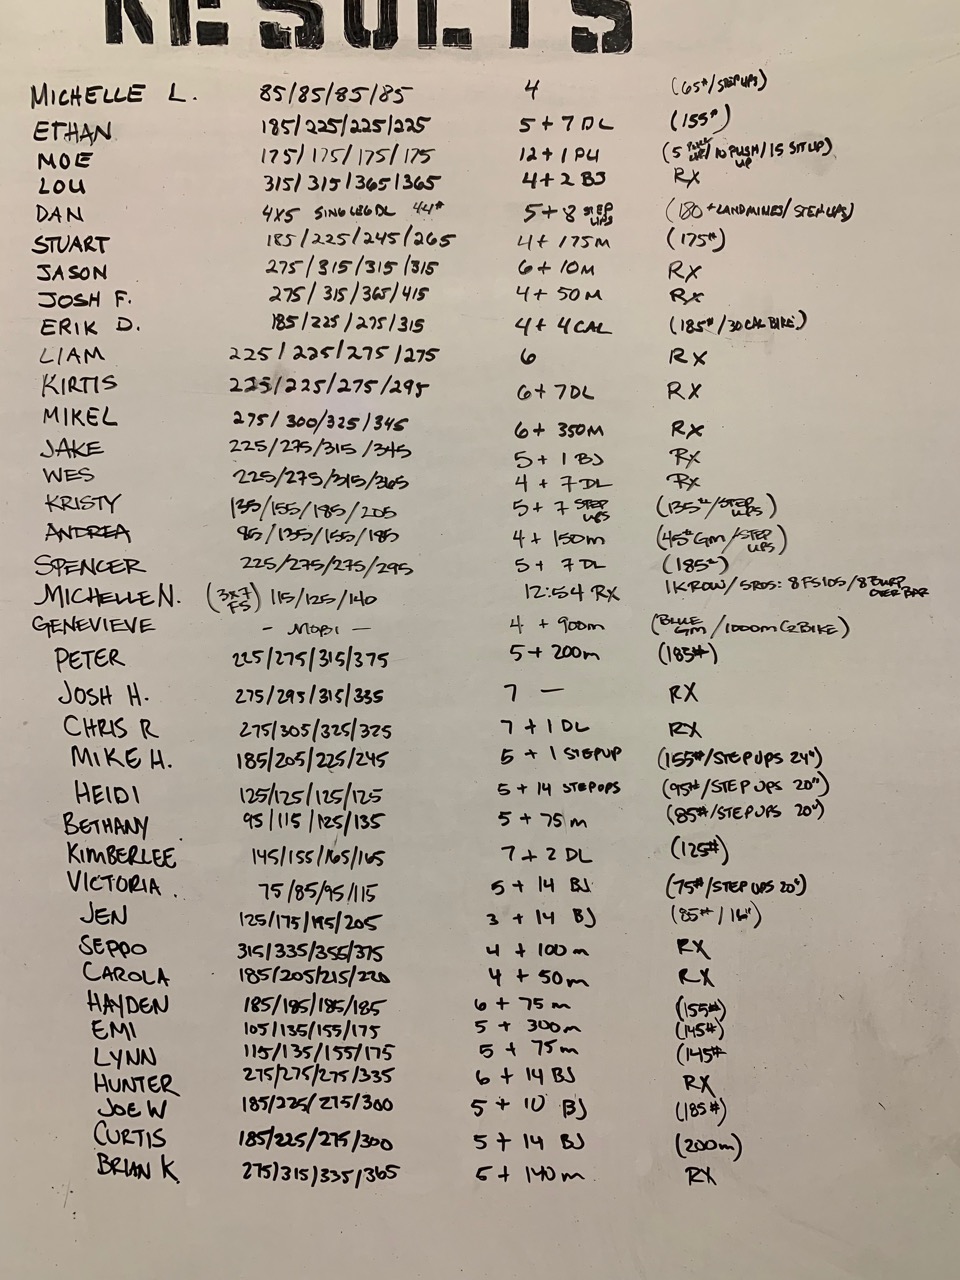 RESULTS
MICHELLE L. 85/85/85/85 4 (65#/STEP UPS)
ETHAN 185/225/225/225 5 + 7 DL (155#)
MOE 175/175/175/175 12 + 1 PU (5 PULL UPS/10 PUSH UP/15 SIT UP)
LOU 315/315/365/365 4 + 2 BJ RX
DAN 4X5 SINGLE LEG DL 44# 5 + 8 STEP UPS (180# LANDMINES/STEP UPS)
STUART 185/225/245/265 4 + 175M (175#)
JASON 275/315/315/315 6 + 10M RX
JOSH F. 275/315/365/415 4 + 50M RX
ERIK D. 185/225/275/315 4 + 4 CAL (185#/30 CAL BIKE)
LIAM 225/225/275/275 6 RX
KIRTIS 225/225/275/295 6 + 7 DL RX
MIKEL 275/300/325/345 6 + 350M RX
JAKE 225/275/315/345 5 + 1 BJ RX
WES 225/275/315/365 4 + 7 DL RX
KRISTY 135/155/185/205 5 + 7 STEP UPS (135#/STEP UPS)
ANDREA 95/135/155/185 4 + 150m (45# GM/STEP UPS)
SPENCER 225/275/275/295 5 + 7 DL (185#)
MICHELLE N. (3x7 FS) 115/125/140 12:54 RX 1K ROW/5 RDS: 8 FS 105/8 BURP OVER BAR
GENEVIEVE - MOBI - 4 + 900m (BLUE GM/1000m C2 BIKE)
PETER 225/275/315/375 5 + 200m (185#)
JOSH H. 275/295/315/335 7 — RX
CHRIS R 275/305/325/325 7 + 1 DL RX
MIKE H. 185/205/225/245 5 + 1 STEPUP (155#/STEP UPS 24")
HEIDI 125/125/125/125 5 + 14 STEPUPS (95#/STEP UPS 20")
BETHANY 95/115/125/135 5 + 75m (85#/STEP UPS 20")
KIMBERLEE 145/155/165/165 7 + 2 DL (125#)
VICTORIA. 75/85/95/115 5 + 14 BJ (75#/STEP UPS 20")
JEN 125/175/195/205 3 + 14 BJ (85#/16")
SEPPO 315/335/355/375 4 + 100m RX
CAROLA 185/205/215/220 4 + 50m RX
HAYDEN 185/185/185/185 6 + 75m (155#)
EMI 105/135/155/175 5 + 300m (145#)
LYNN 115/135/155/175 5 + 75m (145#
HUNTER 275/275/275/335 6 + 14 BJ RX
JOE W 185/225/275/300 5 + 10 BJ (185#)
CURTIS 185/225/275/300 5 + 14 BJ (200m)
BRIAN K. 275/315/335/365 5 + 140m RX